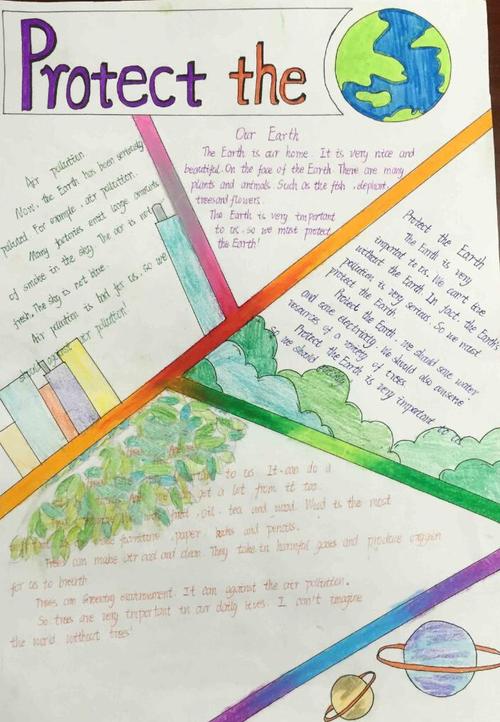 Protect the
Our Earth
The Earth is our home. It is very nice and
beautiful. On the face of the Earth. There are many
plants and animals. Such as the fish, elephant,
trees and flowers.
The Earth is very important
to us. so we must protect
the Earth!
Air pollution
Now, the Earth has been seriously
polluted. For example, air pollution.
Many factories emit large amounts
of smoke in the sky. The air is not
fresh. The sky is not blue.
Air pollution is bad for us, so we
should against air pollution!
Protect the Earth
The Earth is very
important to us. We can't live
without the Earth. In fact, the Earth's
pollution is very serious. So we must
protect the Earth.
Protect the Earth, we should save water
and save electricity. We should also conserve
resources of a variety of trees
Protect the Earth is very important to us
So we should
to us. It can do a
get a lot from it too.
oil, tea and wood. Wood is the most
furniture, paper, and pencils.
Trees can make air cool and clean. They take in harmful gases and produce oxygen
for us to breath
Trees can Greening environment. It can against the air pollution.
So trees are very important in our daily lives. I can't imagine
the world without trees!